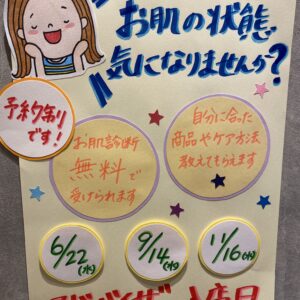 お肌の状態
気になりませんか?
予約制
です!
お肌診断
無料で
受けられます
自分に合った
商品やケア方法
教えてもらえます
6/22(水)
9/14(水)
11/16(水)
店日